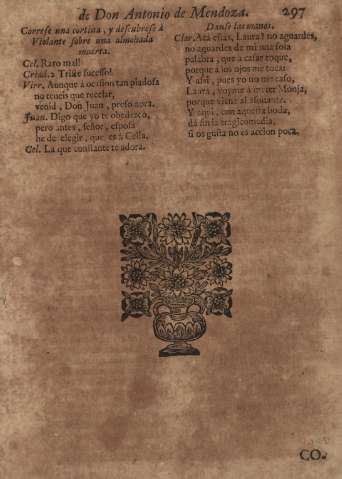 de Don Antonio de Mendoza. 297
Correse una cortina, y descubrese à
Violante sobre una almohada
muerta.
Cel. Raro mal!
Criad. 2 Triste sucesso!
Virr. Aunque à ocasion tan piadosa
no teneis que recelar,
venid, Don Juan, preso aora.
Juan. Digo que yo te obedezco,
pero antes, señor, esposa
he de elegir, que es à Celia,
Cel. La que constante te adora.
Danse las manos.
Clar. Acà estàs, Laura? no aguardes,
no aguardes de mi una sola
palabra, que à casar toque,
porque à los ojos me toca:
Y assi, pues yo no me caso,
Laura, voyme à meter Monja,
porque viene al
Y aqui, con aquesta boda,
dà fin la tragicomedia,
si os gusta no es accion poca.
CO-